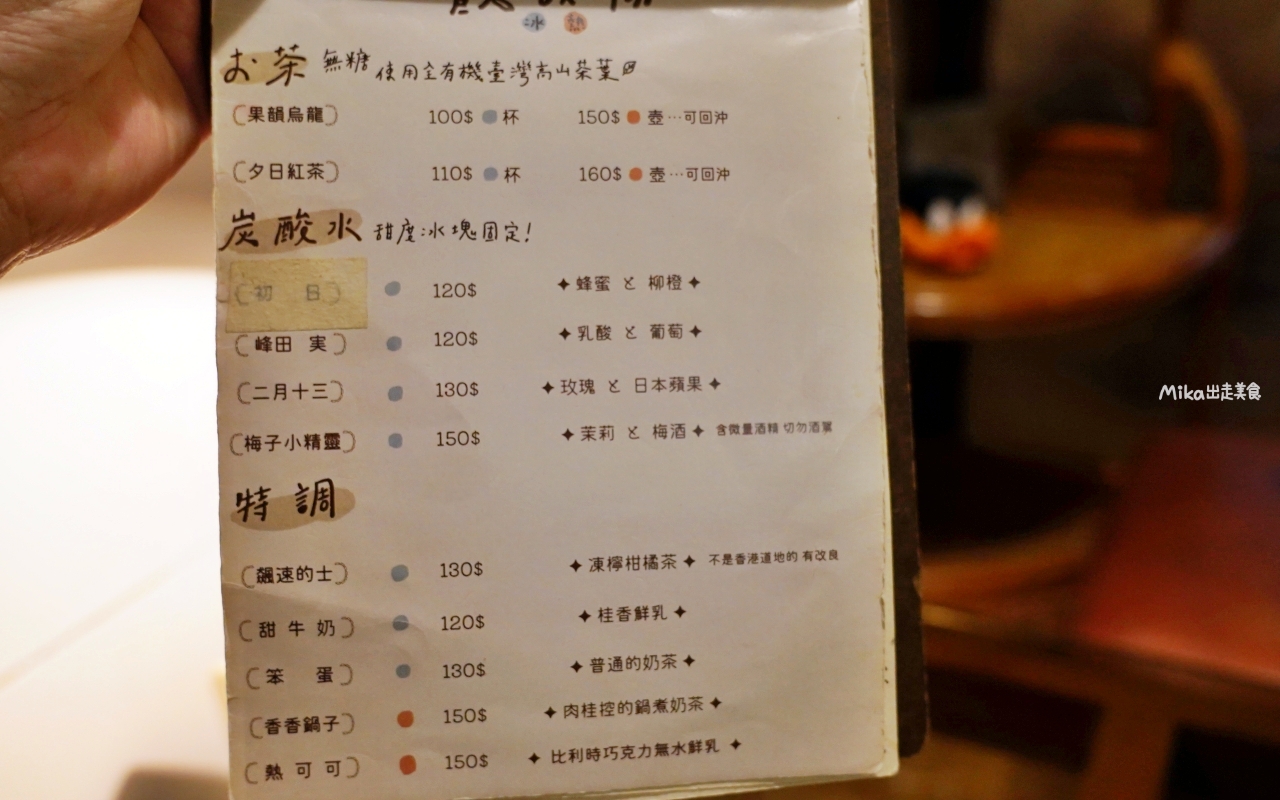 冰 熱
お茶 無糖 使用全有機臺灣高山茶葉
〔果韻烏龍〕 100$ 杯 150$ 壺…可回沖
〔夕日紅茶〕 110$ 杯 160$ 壺…可回沖
炭酸水 甜度冰塊固定!
〔初 日〕 120$ ✦蜂蜜 と 柳橙✦
〔峰田 実〕 120$ ✦乳酸 と 葡萄✦
〔二月十三〕 130$ ✦玫瑰 と 日本蘋果✦
〔梅子小精靈〕 150$ ✦茉莉 と 梅酒✦ 含微量酒精 切勿酒駕
特調
〔飆速的士〕 130$ ✦凍檸柑橘茶✦ 不是香港道地的 有改良
〔甜牛奶〕 120$ ✦桂香鮮乳✦
〔笨 蛋〕 130$ ✦普通的奶茶✦
〔香香鍋子〕 150$ ✦肉桂控的鍋煮奶茶✦
〔熱可可〕 150$ ✦比利時巧克力無水鮮乳✦
Mika出走美食